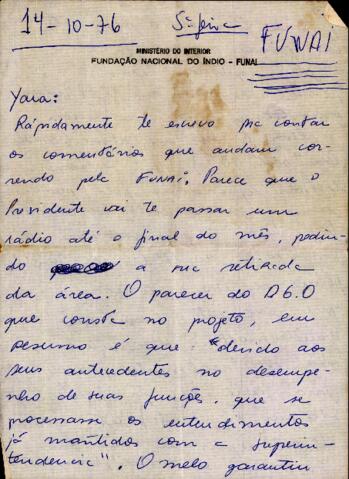 14-10-76 5ª feira
FUNAI
MINISTÉRIO DO INTERIOR
FUNDAÇÃO NACIONAL DO ÍNDIO - FUNAI
Yara:
Rápidamente te escrevo pra contar
os comentários que andam cor-
rendo pela FUNAI. Parece que o
Presidente vai te passar um
rádio até o final do mês, pedin-
do a sua retirada
da área. O parecer do DGO
que consta no projeto, em
resumo é que: "devido aos
seus antecedentes no desempe-
nho de suas funções, que se
processasse os entendimentos
já mantidos com a superin-
tendencia". O melo garantiu